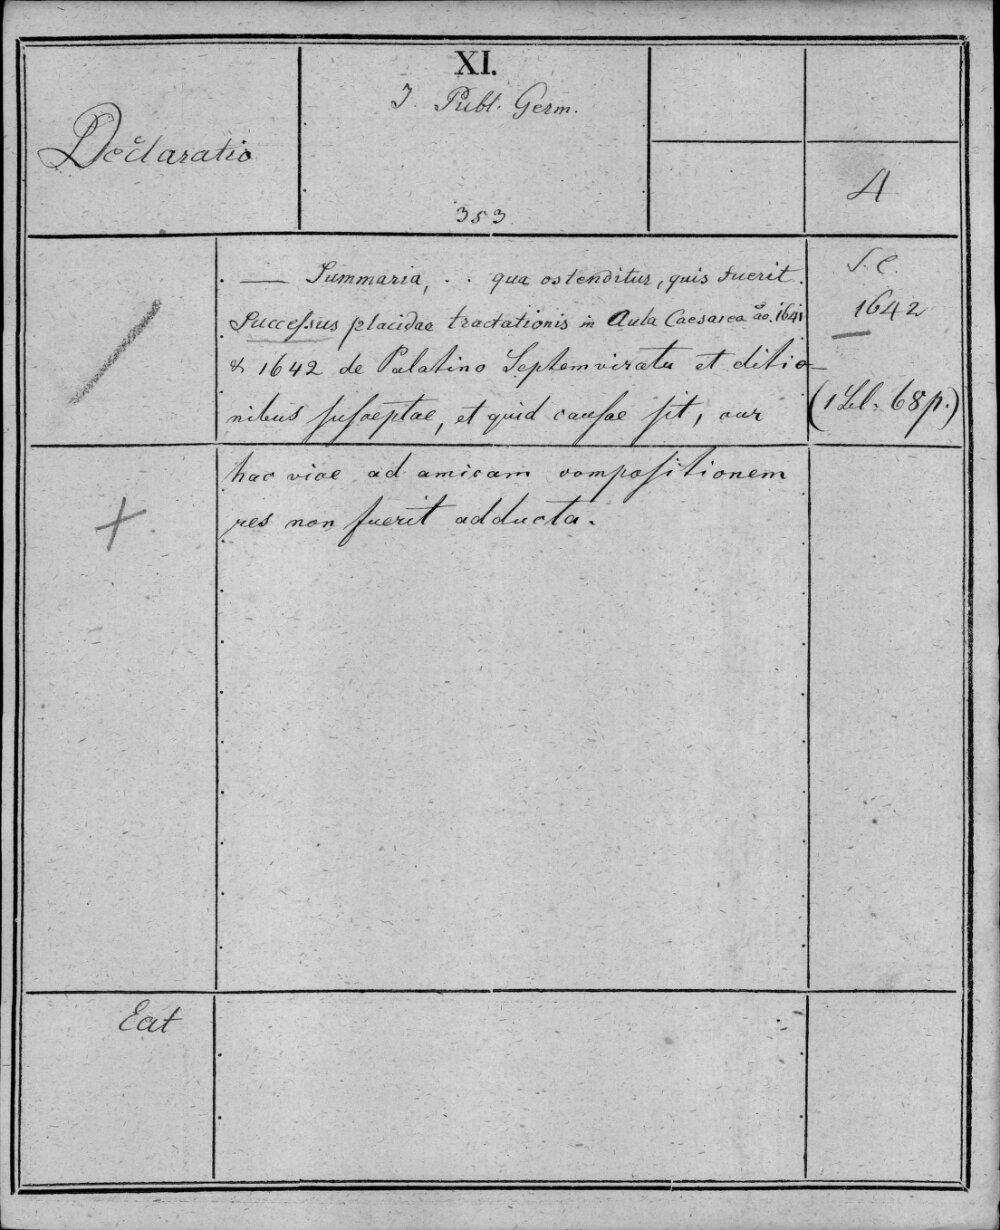 XI.
J. Publ. Germ.
Declaratio
A
353
— Summaria, . . qua ostenditur, quis fuerit
Successus placidae tractationis in Aula Caesarea ao. 1641
& 1642 de Palatino Septemviratu et ditio
nibus susceptae, et quid causae sit, cur
hac viae ad amicam compositionem
res non fuerit adducta.
S. l.
1642
(1 Bl. 68 p.)